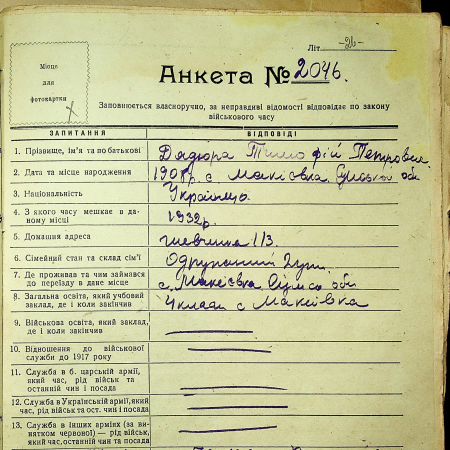 Місце
для
фотокартки
Літ. -26-
Анкета № 2046.
Заповнюється власноручно, за неправдиві відомості відповідає по закону
військового часу
ЗАПИТАННЯ ВІДПОВІДІ
1. Прізвище, ім'я та по батькові Дядюра Тимофій Петрович.
2. Дата та місце народження 1908р. с Макіївка Сумської об
3. Національність Українець.
4. З якого часу мешкає в да-
ному місці 1932р.
5. Домашня адреса 113.
6. Сімейний стан та склад сім'ї Одружений
7. Де проживав та чим займався
до переїзду в дане місце с. Макіївка об
8. Загальна освіта, який учбовий
заклад, де і коли закінчив 4 класи с Макіївка
9. Військова освіта, який заклад,
де і коли закінчив
10. Відношення до військової
служби до 1917 року
11. Служба в б. царській армії,
який час, рід військ та
останній чин і посада
12. Служба в Українській армії, який
час, рід військ та ост. чин і посада
13. Служба в інших арміях (за ви-
нятком червоної) — рід військ,
який час, останній чин та посада